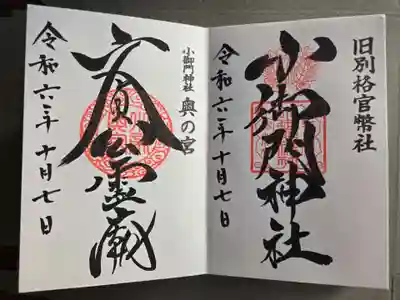 旧別格官幣社
小御門神社
令和六年十月七日
小御門神社 奥の宮
文貞公霊廟
令和六年十月七日